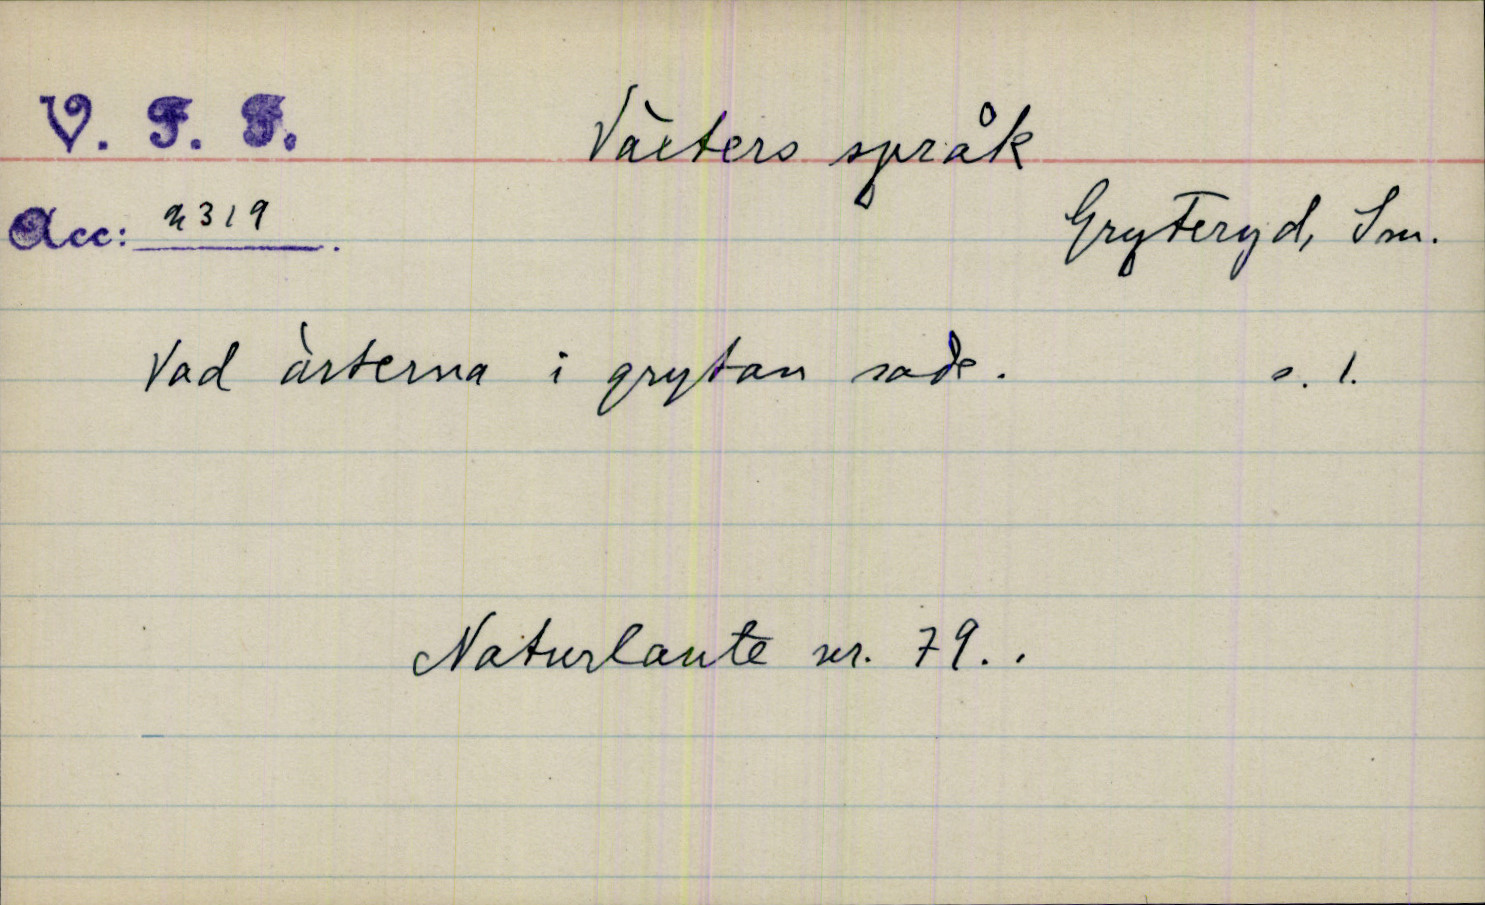 V. F. F.
Växters språk
Acc: 2319.
Gryteryd, Sm.
Vad ärterna i grytan sade. s. 1.
Naturlaute nr. 79..